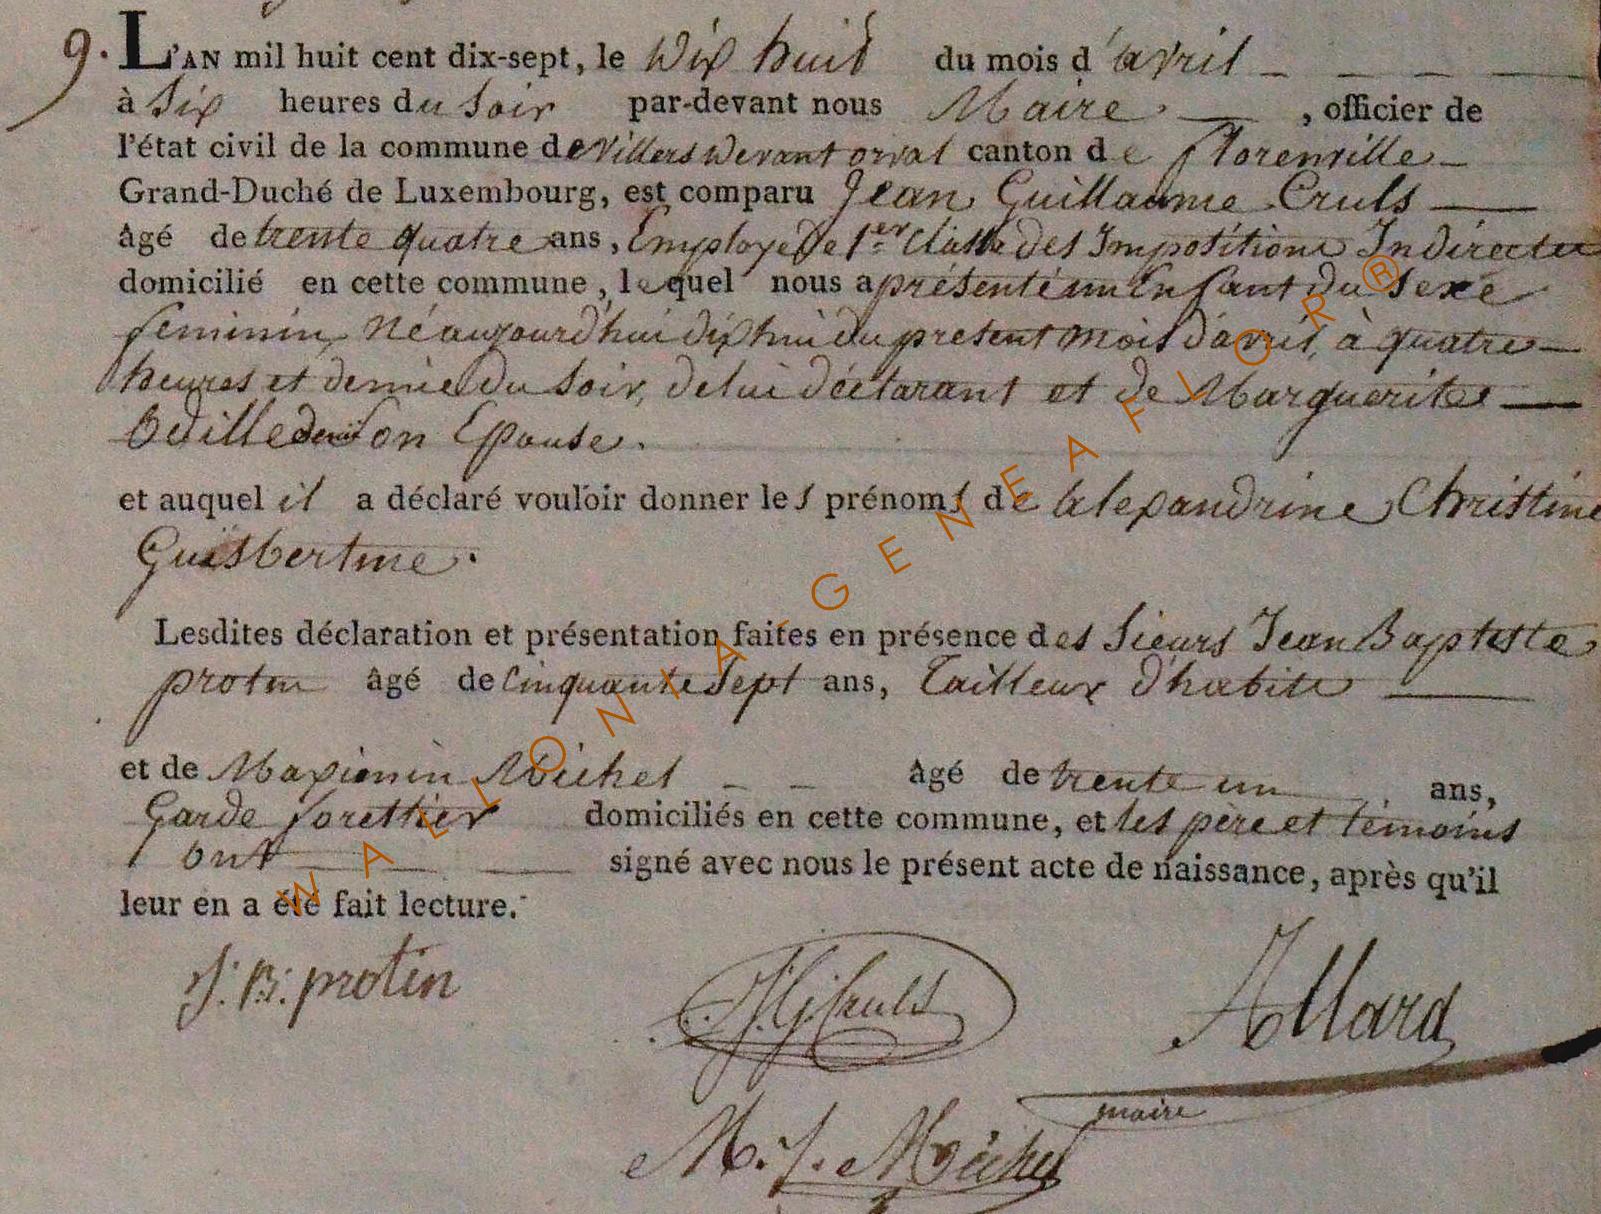 9. L'AN mil huit cent dix-sept, le dix huit du mois d'avril
à Six heures du Soir par-devant nous Maire , officier de
l'état civil de la commune de Villers devant orval canton de florenville
Grand-Duché de Luxembourg, est comparu Jean Guillaume Cruls
âgé de trente quatre ans, Employé de 1er Classe des Impositions Indirectes
domicilié en cette commune, lequel nous a présenté un Enfant du Sexe
feminin, Né aujourd'hui dix huit du present mois d'avril, à quatre
heures et demie du Soir, de lui déclarant et de Marguerite
Son Epouse.
et auquel il a déclaré vouloir donner les prénoms de Alexandrine Christine
Guisbertine.
Lesdites déclaration et présentation faites en présence des Sieurs Jean Baptiste
protin âgé de Cinquante Sept ans, Tailleur d'habits
et de Maximin Michel âgé de trente un ans,
Garde forestier domiciliés en cette commune, et les père et témoins
ont signé avec nous le présent acte de naissance, après qu'il
leur en a été fait lecture.
J. B. protin
J. G. Cruls
Allard
maire
M. J. Michel
WALLONIA-GENEAFLOR®